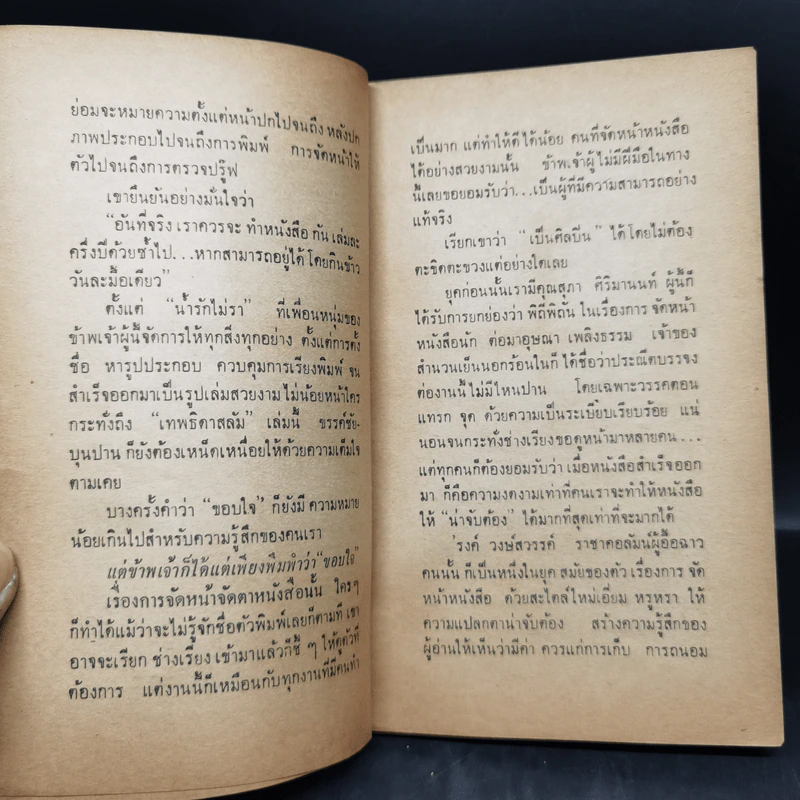 ย่อมจะหมายความตั้งแต่หน้าปกไปจนถึง หลังปก
ภาพประกอบไปจนถึงการพิมพ์ การจัดหน้าให้
ตัวไปจนถึงการตรวจปรู๊ฟ
เขายืนยันอย่างมั่นใจว่า
“อันที่จริง เราควรจะ ทำหนังสือ กัน เล่มละ
ครึ่งปีด้วยซ้ำไป...หากสามารถอยู่ได้ โดยกินข้าว
วันละมื้อเดียว”
ตั้งแต่ “น้ำรักไม่รา” ที่เพื่อนหนุ่มของ
ข้าพเจ้าผู้นี้จัดการให้ทุกสิ่งทุกอย่าง ตั้งแต่การตั้ง
ชื่อ หารูปประกอบ ควบคุมการเรียงพิมพ์ จน
สำเร็จออกมาเป็นรูปเล่มสวยงาม ไม่น้อยหน้าใคร
กระทั่งถึง “เทพธิดาสลัม” เล่มนี้ ขรรค์ชัย-
บุนปาน ก็ยังต้องเหน็ดเหนื่อยให้ด้วยความเต็มใจ
ตามเคย
บางครั้งคำว่า “ขอบใจ” ก็ยังมี ความหมาย
น้อยเกินไปสำหรับความรู้สึกของคนเรา
แต่ข้าพเจ้าก็ได้แต่เพียงพึมพำว่า “ขอบใจ”
เรื่องการจัดหน้าจัดตาหนังสือนั้น ใครๆ
ก็ทำได้แม้ว่าจะไม่รู้จักชื่อตัวพิมพ์เลยก็ตามที เขา
อาจจะเรียก ช่างเรียง เข้ามาแล้วก็ชี้ ๆ ให้ดูตัวที่
ต้องการ แต่งานนี้ก็เหมือนกับทุกงานที่มีคนทำ
เป็นมาก แต่ทำให้ดีได้น้อย คนที่จัดหน้าหนังสือ
ได้อย่างสวยงามนั้น ข้าพเจ้าผู้ไม่มีฝีมือในทาง
นี้เลยขอยอมรับว่า...เป็นผู้ที่มีความสามารถอย่าง
แท้จริง
เรียกเขาว่า “เป็นศิลปิน” ได้โดยไม่ต้อง
ตะขิดตะขวงแต่อย่างใดเลย
ยุคก่อนนั้นเรามีคุณสุภา ศิริมานนท์ ผู้นี้ก็
ได้รับการยกย่องว่า พิถีพิถัน ในเรื่องการ จัดหน้า
หนังสือนัก ต่อมาอุษณา เพลิงธรรม เจ้าของ
สำนวนเย็นนอกร้อนในก็ ได้ชื่อว่าประณีตบรรจง
ต่องานนี้ไม่มีไหนปาน โดยเฉพาะวรรคตอน
แทรก จุด ด้วยความเป็นระเบียบเรียบร้อย แน่
นอนจนกระทั่งช่างเรียงขอดูหน้ามาหลายคน...
แต่ทุกคนก็ต้องยอมรับว่า เมื่อหนังสือสำเร็จออก
มา ก็คือความงดงามเท่าที่คนเราจะทำให้หนังสือ
ให้ “น่าจับต้อง” ได้มากที่สุดเท่าที่จะมากได้
’รงค์ วงษ์สวรรค์ ราชาคอลัมน์ผู้อื้อฉาว
คนนั้น ก็เป็นหนึ่งในยุค สมัยของตัว เรื่องการ จัด
หน้าหนังสือ ด้วยสะไตล์ใหม่เอี่ยม หรูหรา ให้
ความแปลกตาน่าจับต้อง สร้างความรู้สึกของ
ผู้อ่านให้เห็นว่ามีค่า ควรแก่การเก็บ การถนอม